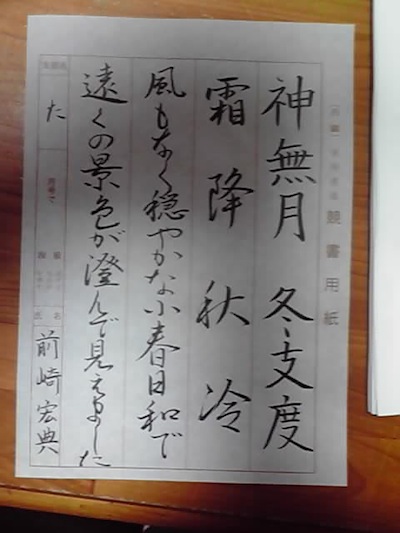 競書用紙
神無月 冬支度
霜降秋冷
風もなく穏やかな小春日和で
遠くの景色が澄んで見えました
た
氏名
前崎宏典